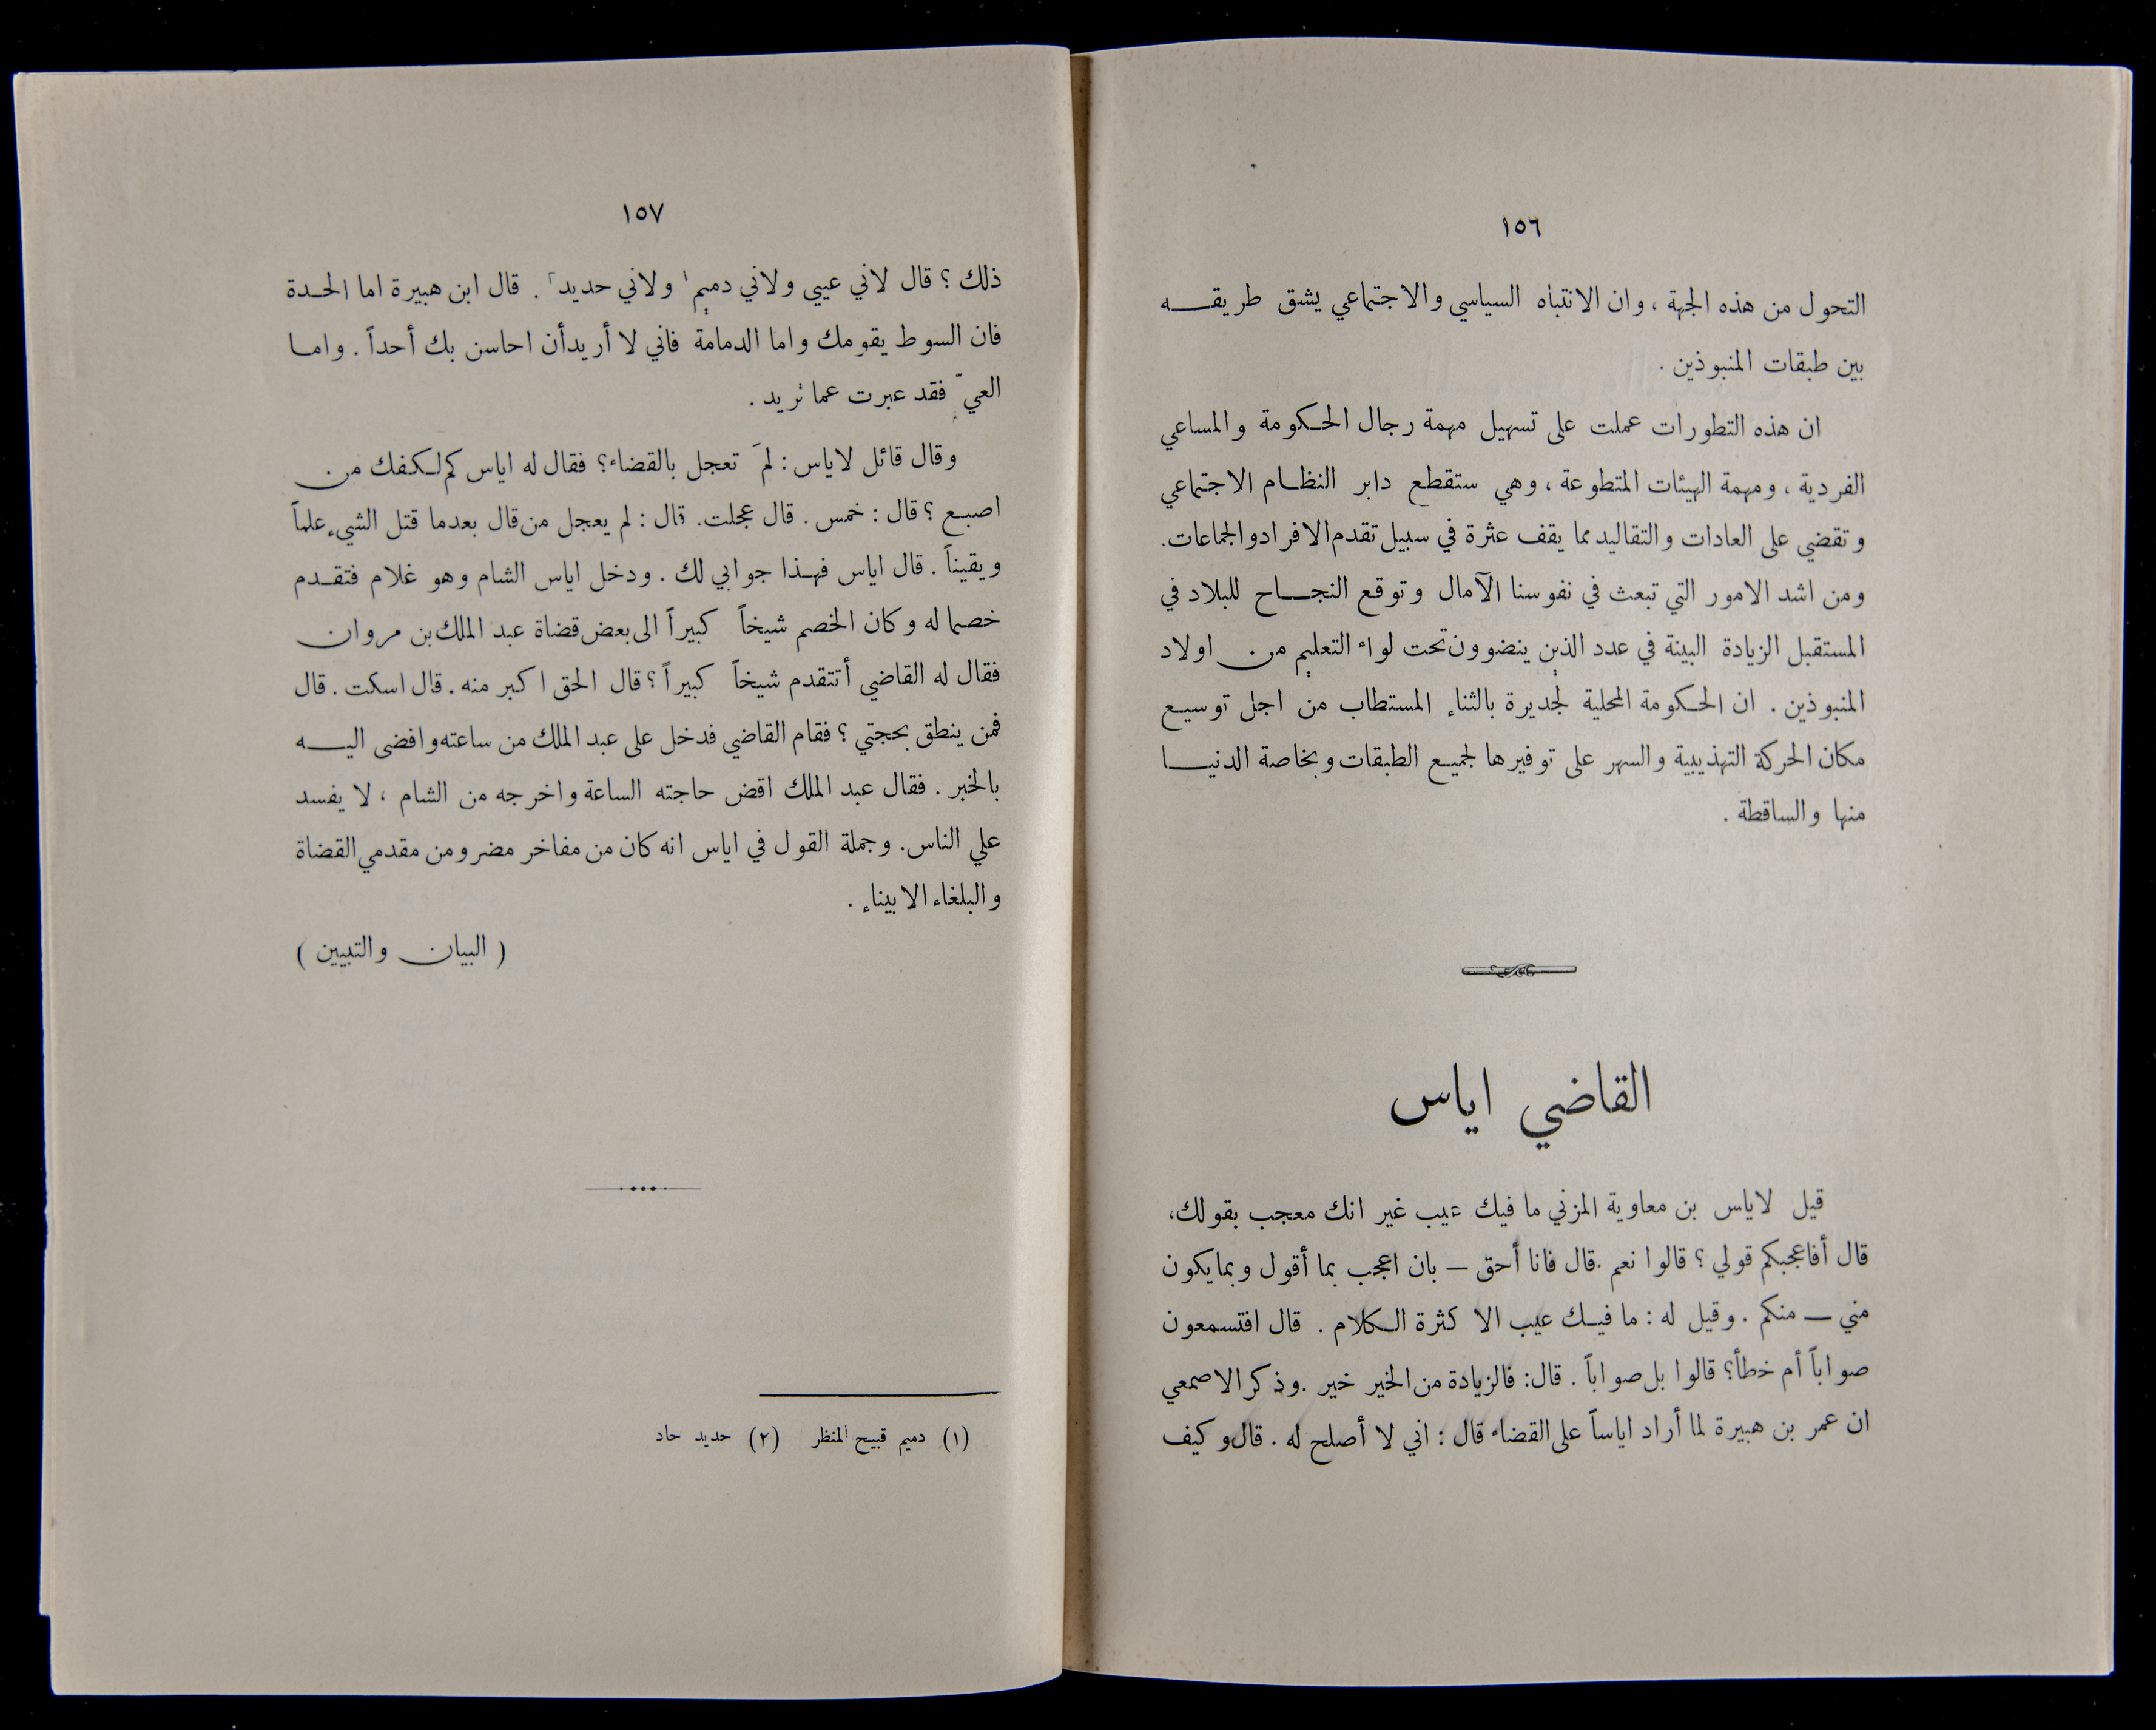 ١٥٦
التحول من هذه الجهة ، وان الانتباه السياسي والاجتماعي يشق طريقه
بين طبقات المنبوذين .
ان هذه التطورات عملت على تسهيل مهمة رجال الحكومة والمساعي
الفردية ، ومهمة الهيئات المتطوعة ، وهي ستقطع دابر النظام الاجتماعي
وتقضي على العادات والتقاليد مما يقف عثرة في سبيل تقدم الافراد والجماعات.
ومن اشد الامور التي تبعث في نفوسنا الآمال وتوقع النجاح للبلاد في
المستقبل الزيادة البينة في عدد الذين ينضوون تحت لواء التعليم من اولاد
المنبوذين . ان الحكومة المحلية لجديرة بالثناء المستطاب من اجل توسيع
مكان الحركة التهذيبية والسهر على توفيرها لجميع الطبقات وبخاصة الدنيا
منها والساقطة .
القاضي اياس
قيل لاياس بن معاوية المزني ما فيك عيب غير انك معجب بقولك،
قال أفاعجبكم قولي ؟ قالوا نعم .قال فانا أحق — بان اعجب بما أقول وبما يكون
مني — منكم . وقيل له : ما فيك عيب الا كثرة الكلام . قال افتسمعون
صواباً أم خطأ؟ قالوا بل صواباً . قال: فالزيادة من الخير خير .وذكر الاصمعي
ان عمر بن هبيرة لما أراد اياساً على القضاء قال : اني لا أصلح له . قال وكيف
١٥٧
ذلك ؟ قال لاني عيبي ولاني دميم١ ولاني حديد٢ . قال ابن هبيرة اما الحدة
فان السوط يقومك واما الدمامة فاني لا أريد أن احاسن بك أحداً . واما
العيّ فقد عبرت عما تريد .
وقال قائل لاياس : لمَ تعجل بالقضاء؟ فقال له اياس كم لكفك من
اصبع ؟ قال : خمس . قال عجلت. قال : لم يعجل من قال بعدما قتل الشيء علماً
ويقيناً . قال اياس فهذا جوابي لك . ودخل اياس الشام وهو غلام فتقدم
خصما له وكان الخصم شيخاً كبيراً الى بعض قضاة عبد الملك بن مروان
فقال له القاضي أتتقدم شيخاً كبيراً ؟ قال الحق اكبر منه . قال اسكت . قال
فمن ينطق بحجتي ؟ فقام القاضي فدخل على عبد الملك من ساعته وافضى اليه
بالخبر . فقال عبد الملك اقض حاجته الساعة واخرجه من الشام ، لا يفسد
علي الناس. وجملة القول في اياس انه كان من مفاخر مضر ومن مقدمي القضاة
والبلغاء الابيناء .
( البيان والتبيين )
(١) دميم قبيح المنظر (٢) حديد حاد